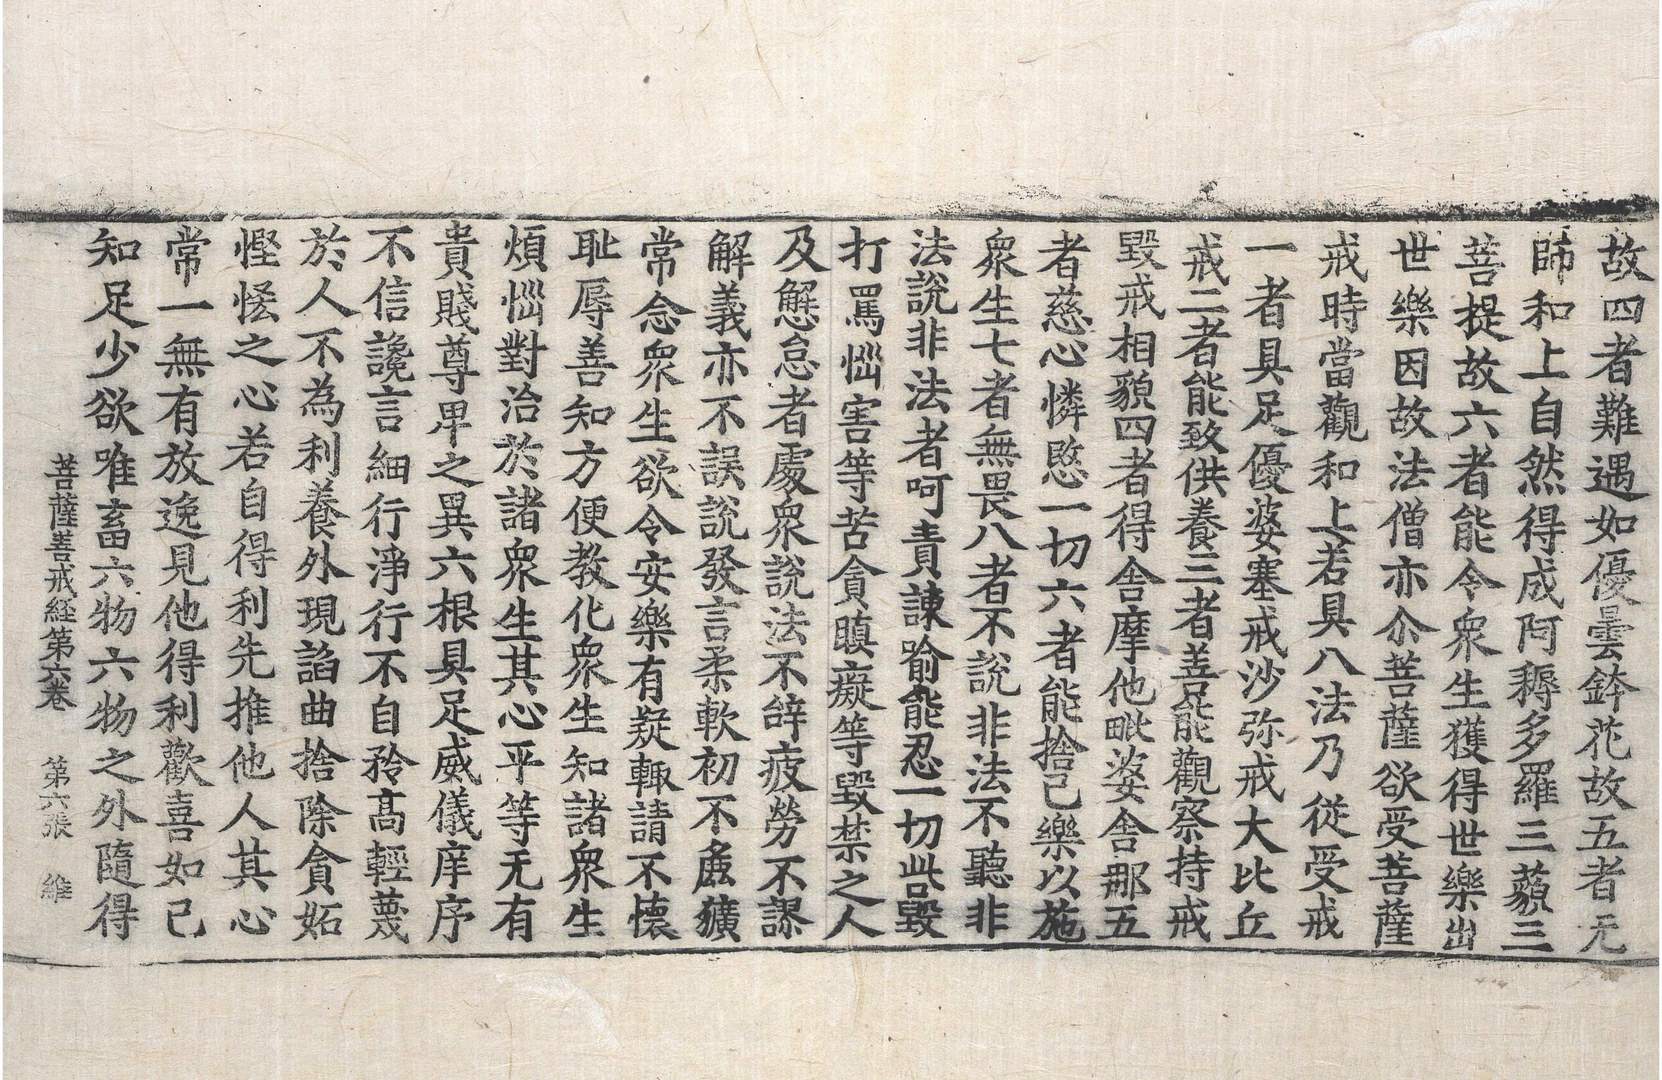 故四者難遇如優曇鉢花故五者无
師和上自然得成阿耨多羅三藐三
菩提故六者能令衆生獲得世樂出
世樂因故法僧亦尒菩薩欲受菩薩
戒時當觀和上若具八法乃從受戒
一者具足優婆塞戒沙弥戒大比丘
戒二者能致供養三者善能觀察持戒
毀戒相貌四者得舍摩他毗婆舍那五
者慈心憐愍一切六者能捨己樂以施
衆生七者無畏八者不說非法不聽非
法說非法者呵責諫喻能忍一切呰毀
打罵惱害等苦貪瞋癡等毀禁之人
及懈怠者處衆說法不辝疲勞不謬
解義亦不誤說發言柔軟初不麁獷
常念衆生欲令安樂有疑輙請不懷
耻辱善知方便教化衆生知諸衆生
煩惱對治於諸衆生其心平等无有
貴賤尊卑之異六根具足威儀庠序
不信讒言細行淨行不自矜髙輕蔑
於人不為利養外現謟曲捨除貪妬
慳悋之心若自得利先推他人其心
常一無有放逸見他得利歡喜如己
知足少欲唯畜六物六物之外隨得
菩薩善戒経第六卷 第六張 維